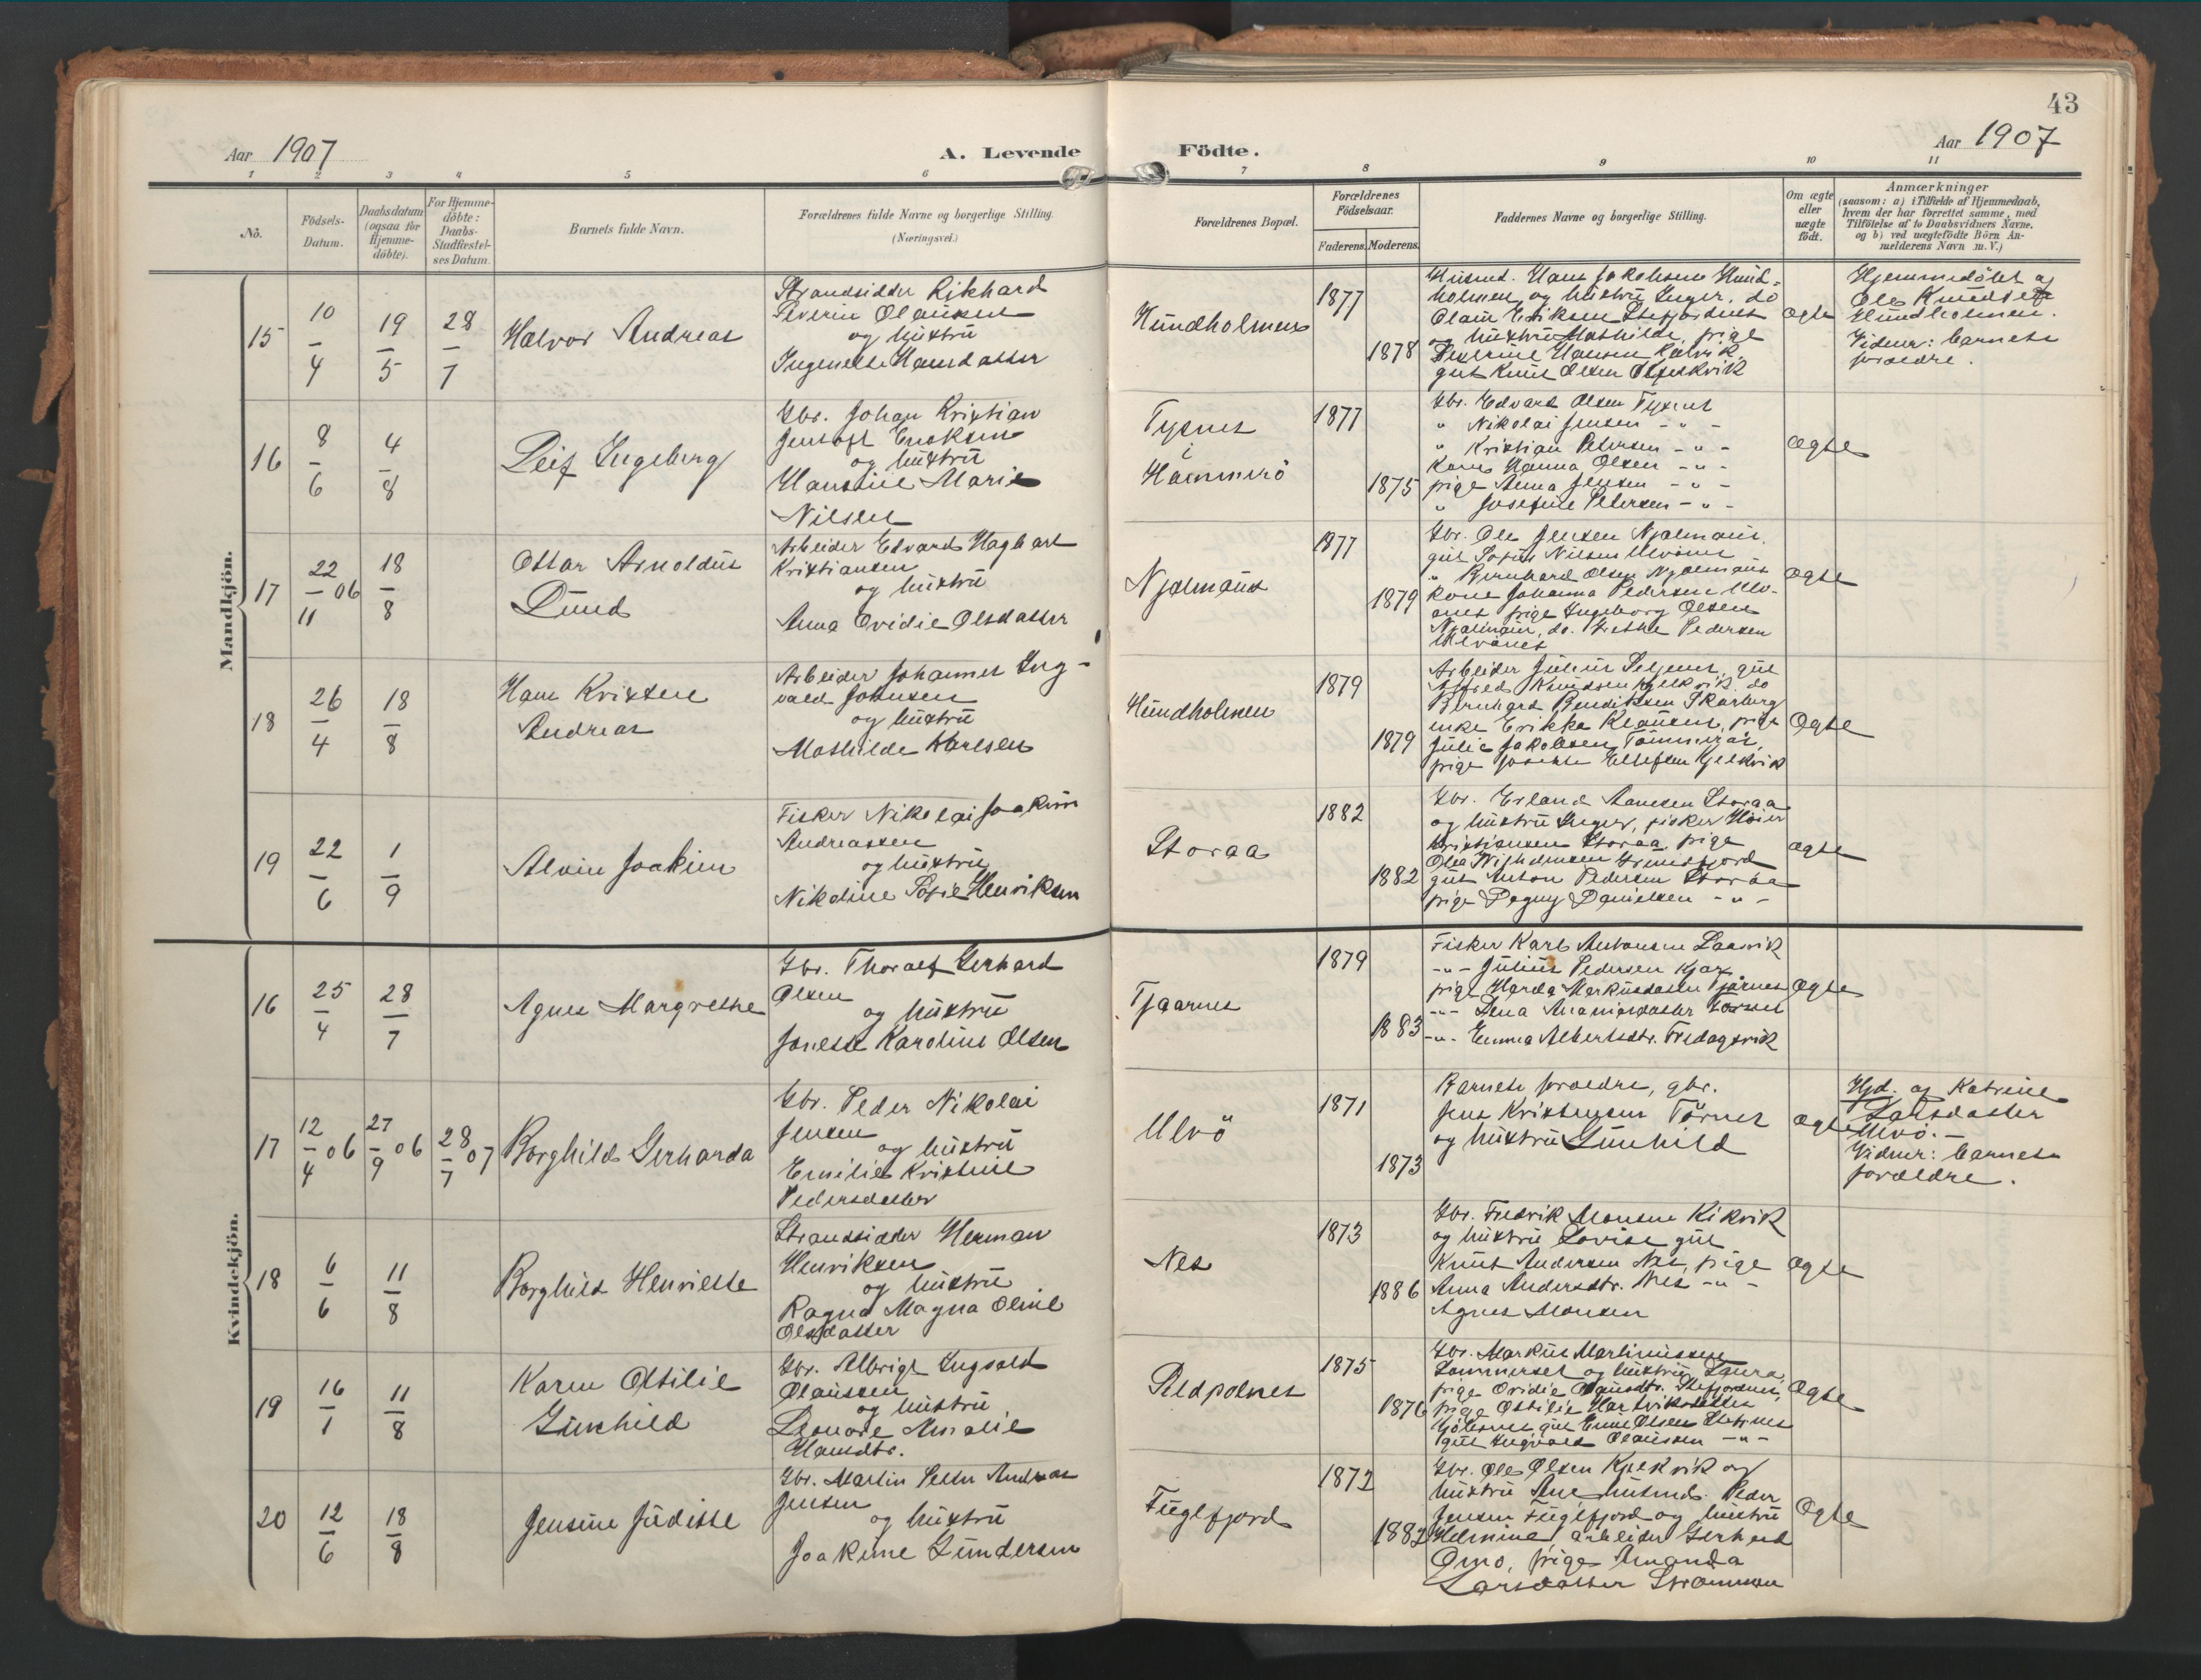 43
Aar 1907
A. Levende
Födte.
Aar 1907
1 2 3 4 5 6 7 8 9 10 11
Nô.
Födsels-
Datum.
Daabsdatum
(ogsaa for
Hjemme-
döbte).
For Hjemme-
döbte:
Daabs-
Stadfæstel-
ses Datum.
Barnets fulde Navn.
Forældrenes fulde Navne og borgerlige Stilling.
(Næringsvei.)
Forældrenes Bopæl.
Forældrenes
Födselsaar.
Faderens. Moderens.
Faddernes Navne og borgerlige Stilling.
Om ægte
eller
uægte
födt.
Anmærkninger
(saasom: a) i Tilfælde af Hjemmedaab,
hvem der har forrettet samme, med
Tilföielse af to Daabsvidners Navne,
og b) ved uægtefödte Börn An-
melderens Navn m. V.)
Mandkjön.
15
10/4
19/5
28/7
Halvor Andreas
Strandsidder Rikhard
Severin Olausen
og hustru
Ingenette Hansdatter
Hundholmen
1877
1878
Husmd. Hans Jakobsen Hund-
holmen og hustru Inger, do
Olaus Eriksen Stefjordnes
og hustru Mathilde, pige
Severine Hansen
gut Knut Olsen
ægte
Hjemmedöbt af
Ole Knudsen
Hundholmen.
Vidner: barnets
forældre.
16
8/6
4/8
Leif Ingeberg
Gbr. Johan Kristian
Jentoft Eriksen
og hustru
Hansine Marie
Nilsen
Tysnes
i
Hammerö
1877
1875
Gbr. Edvard Olsen Tysnes
" Nikolai Jensen - " -
" Kristian Petersen - " -
Kone Hanna Olsen - " -
pige Anna Jensen - " -
" Josefine Petersen - " -
ægte
17
22/11 06
18/8
Ottar Arnoldus
Lund
Arbeider Edvard Hagbart
Kristiansen
og hustru
Anna Ovidie Olsdatter
Njalmaus
1877
1879
Gbr. Ole Jensen Njalmaus,
gut Sofus Nilsen Ulvönes
" Bernhard Olsen Njalmaus
kone Johanna Pedersen Ulv-
önes pige Ingeborg Olsen
Njalmaus, do. Grethe Pedersen
Ulvönes
ægte
18
26/4
18/8
Hans Kristen
Andreas
Arbeider Johannes Ing-
vald Johnsen
og hustru
Mathilde Karlsen
Hundholmen
1879
1879
Arbeider Julius Seljenes, gut
Alfred Knudsen Kjelkvik, do
Bernhard Bendiksen Skarberg
enke Erikka Klausen, pige
Julie Jakobsen Tömmeraas,
pige Josette Ellefsen Kjelkvik
ægte
19
22/6
1/9
Alvin Joakim
Fisker Nikolai Joakim
Andreassen
og hustru
Nikoline Sofie Henriksen
Storaa
1882
1882
Gbr. Erland Aanesen Storaa
og hustru Inger, fisker Höier
Kristiansen Storaa, pige
Olea Grundfjord
gut Anton Pedersen Storaa
pige Dagny Danielsen - " -
ægte
Kvindekjön.
16
25/4
28/7
Agnes Margrethe
Gbr. Thoralf Gerhard
Olsen
og hustru
Janette Karoline Olsen
Tjaarnes
1879
1883
Fisker Karl Antonsen Laavik
- " - Julius Pedersen Kjær
pige Harda Markusdatter Tjårnes
- " - Lina Ananiasdatter
- " - Emma Albertsdtr. Fredagsvik
ægte
17
12/4 06
27/9 06
28/7 07
Borghild Gerharda
Gbr. Peder Nikolai
Jensen
og hustru
Emilie Kristine
Pedersdatter
Ulvö
1871
1873
Barnets forældre, gbr.
Jens Kristensen Tårnes
og hustru Gunhild
ægte
Hjd. af Katrine
Larsdatter
Ulvö. -
Vidner: barnets
forældre.
18
6/6
11/8
Borghild Henriette
Strandsidder Herman
Henriksen
og hustru
Ragna Magna Oline
Olsdatter
Nes
1873
1886
Gbr. Fredrik Monsen Kikvik
og hustru Lovise gut
Knut Andersen Nes, pige
Anna Andersdtr. Nes - " -
Agnes Monsen
ægte
19
16/1
11/8
Karen Ottilie
Gunhild
Gbr. Albrigt Ingvald
Olaussen
og hustru
Leonore Amalie
Hansdtr.
Redpolnes
1875
1876
Gbr. Markus Martinussen
Sommerset og hustru Laura,
pige Ovidie Olausdtr. Stefjordnes,
pige Ottilie Hartviksdatter
gut Emil Olsen
gut Ingvald Olaussen - " -
ægte
20
12/6
18/8
Jensine Juditte
Gbr. Martin Peter Andreas
Jensen
og hustru
Joakime Gundersen
Fuglfjord
1872
1882
Gbr. Ole Olsen Kjelkvik og
hustru Ane husmd. Peder
Jensen Fuglfjord og hustru
Helmine, arbeider Gerhard
Ömo, pige Amanda
Larsdatter Strömmen
ægte